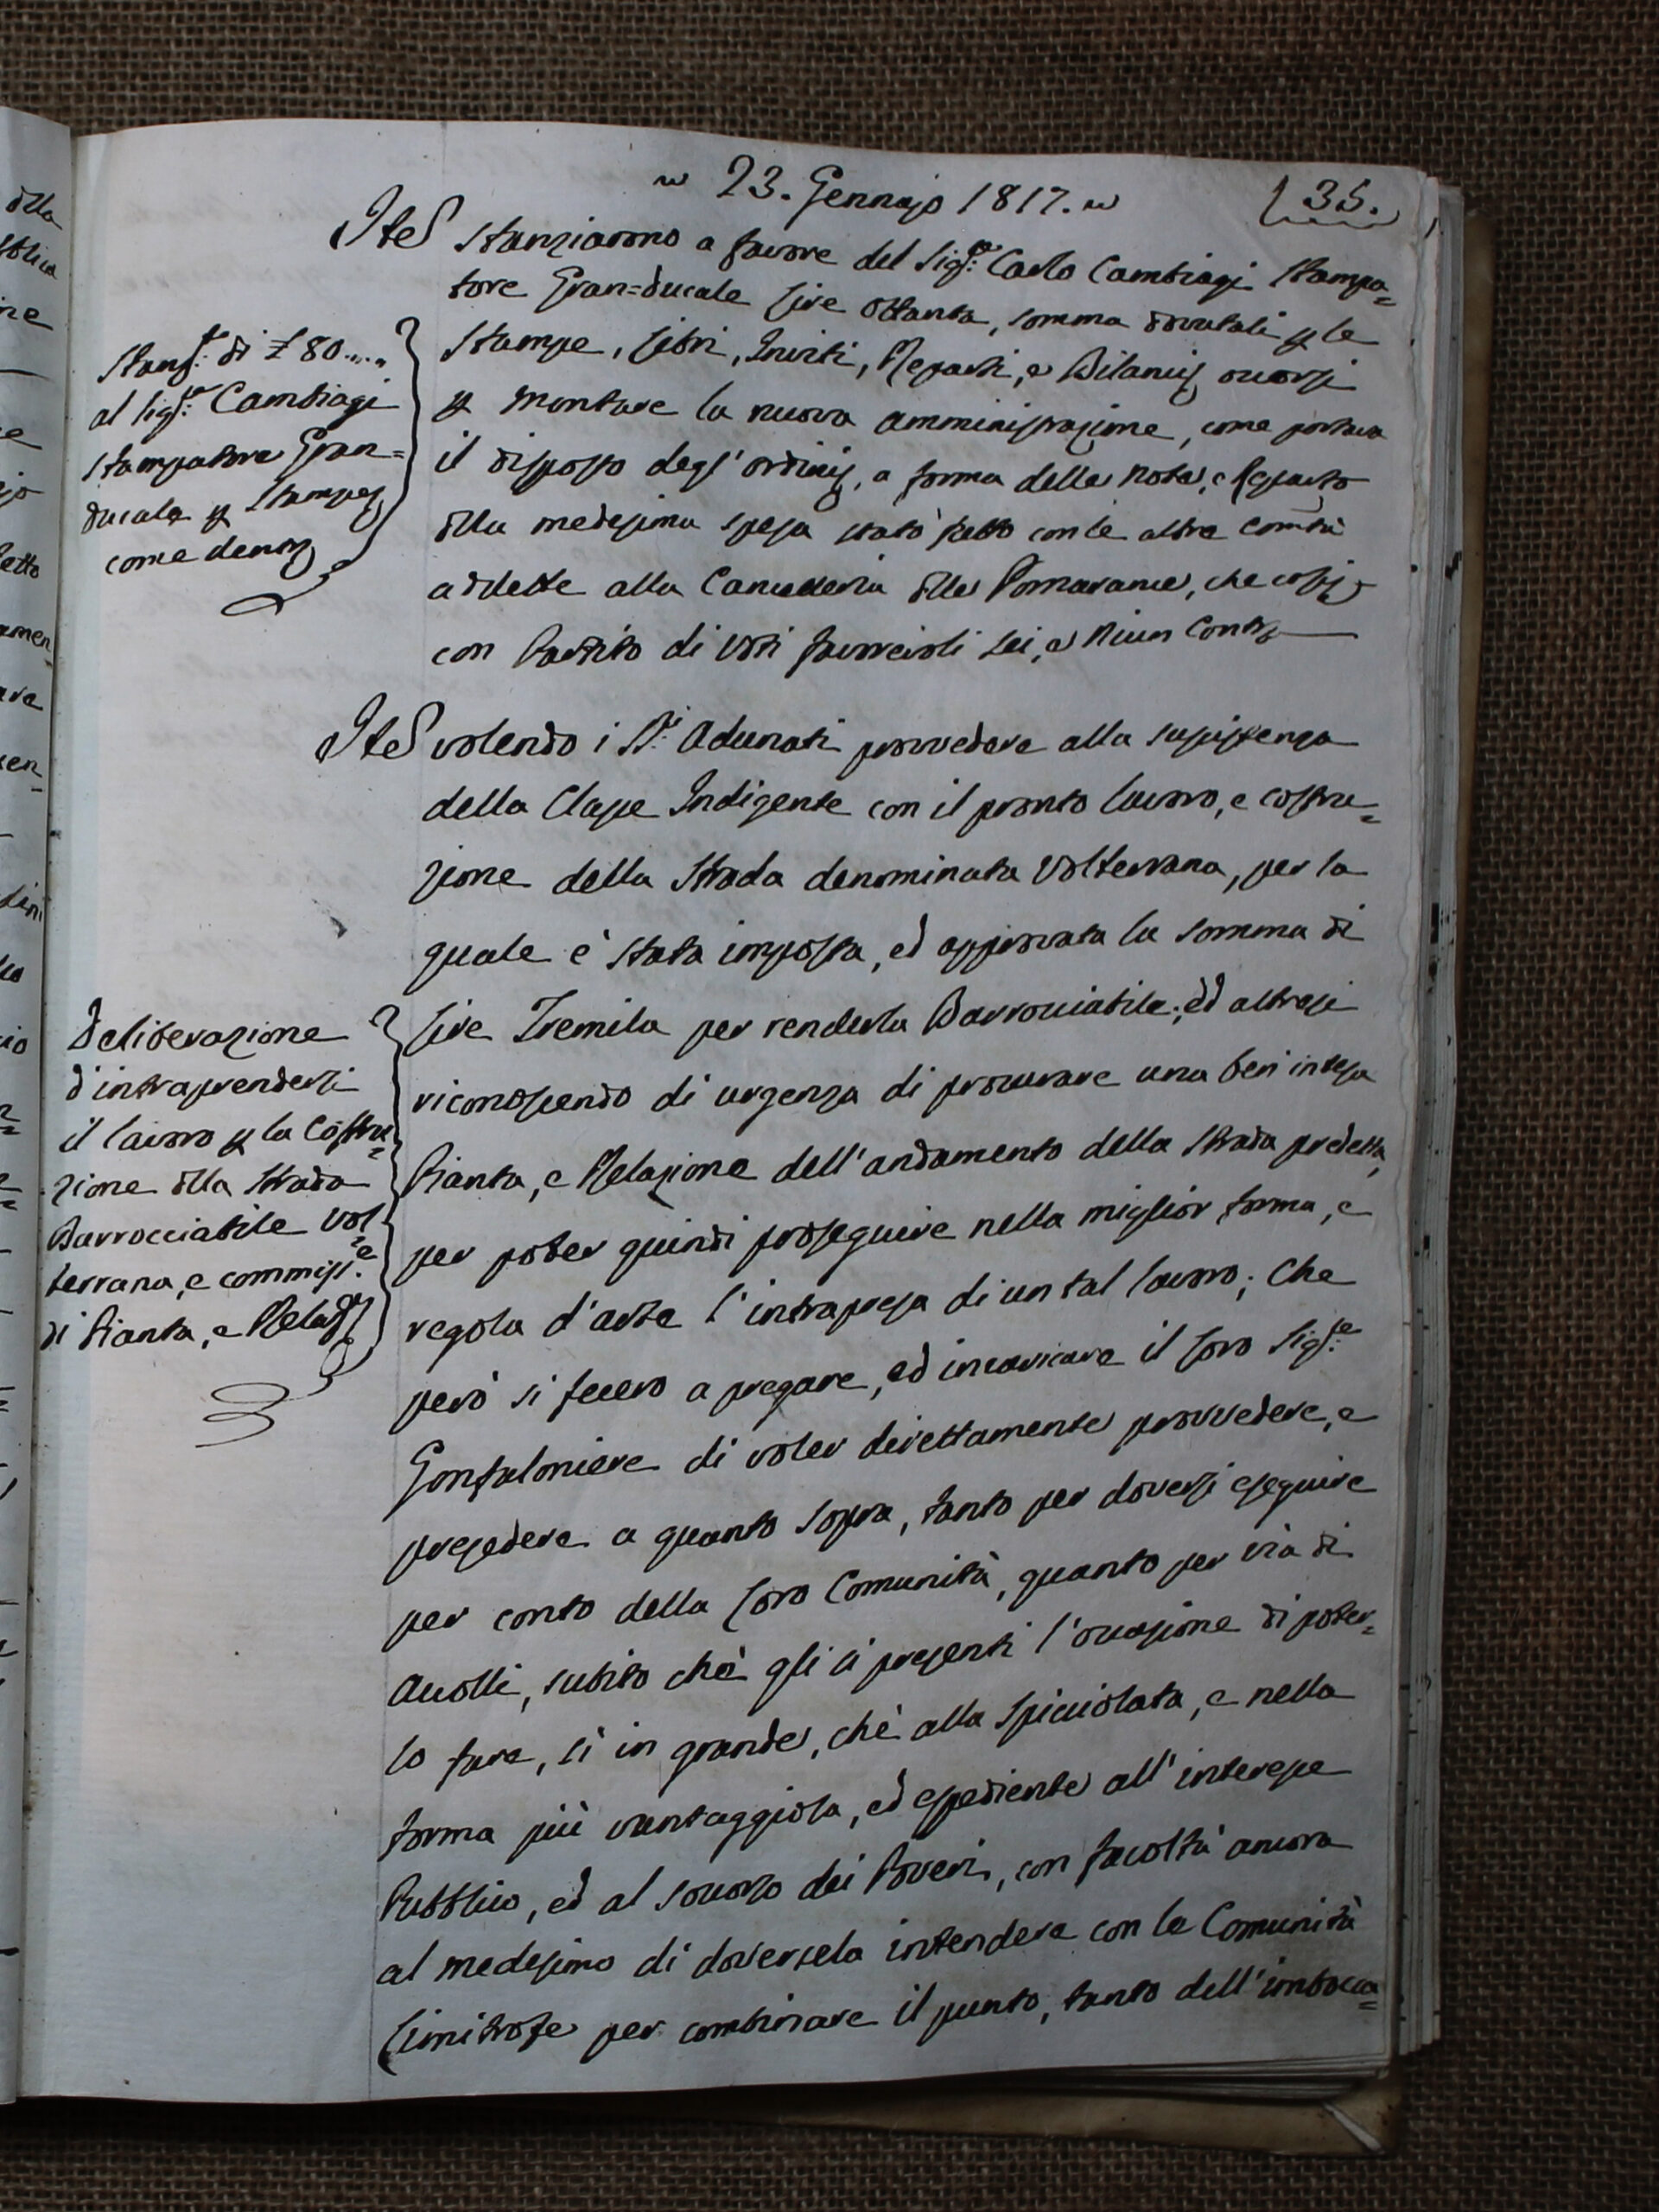 23. Gennajo 1817.
35.
Item Stanziarono a favore del Sig:re Carlo Cambiagi Stampa=
tore Gran=Ducale Lire Ottanta, somma dovutali p le
Stampe, Libri, Inviti, Reparti, e Bilanci, occorsi
p montare la nuova amministrazione, come portava
il disposto degl'ordini, a forma della Nota, e Reparto
della medesima spesa stato fatto con le altre Comità
addette alla Cancelleria delle Pomarance, che così
con Partito di Voti favorevoli sei, e Niun Contr.
Stanz:to di £ 80....
al Sig:re Cambiagi
Stampatore Gran=
ducale p Stampe
come dentro
Item volendo i SS:i Adunati provvedere alla sussistenza
della Classe Indigente con il pronto lavoro, e costru=
zione della Strada denominata Volterrana, per la
quale è stata imposta, ed approvata la somma di
Lire Tremila per renderla Barrociabile; ed altresì
riconoscendo di urgenza di procurare una ben intesa
Pianta, e Relazione dell'andamento della Strada predetta,
per poter quindi proseguire nella miglior forma, e
regola d'arte l'intrapresa di un tal lavoro; Che
però si fecero a pregare, ed incaricare il Loro Sig:re
Gonfaloniere di voler direttamente provvedere, e
presedere a quanto sopra, tanto per doversi eseguire
per conto della Loro Comunità, quanto per via di
Accolli, subito chè gli si presenti l'occasione di poter=
lo fare, sì in grande, chè alla spicciolata, e nella
forma più vantaggiosa, ed espediente all'interesse
Pubblico, ed al soccorso dei Poveri, con facoltà ancora
al medesimo di doversela intendere con le Comunità
Limitrofe per combinare il punto, tanto dell'imbocca=
Deliberazione
d'intraprendersi
il lavoro p la Costru=
zione della Strada
Barrocciabile Vol=
terrana, e commiss:e
di Pianta, e Relaz:e